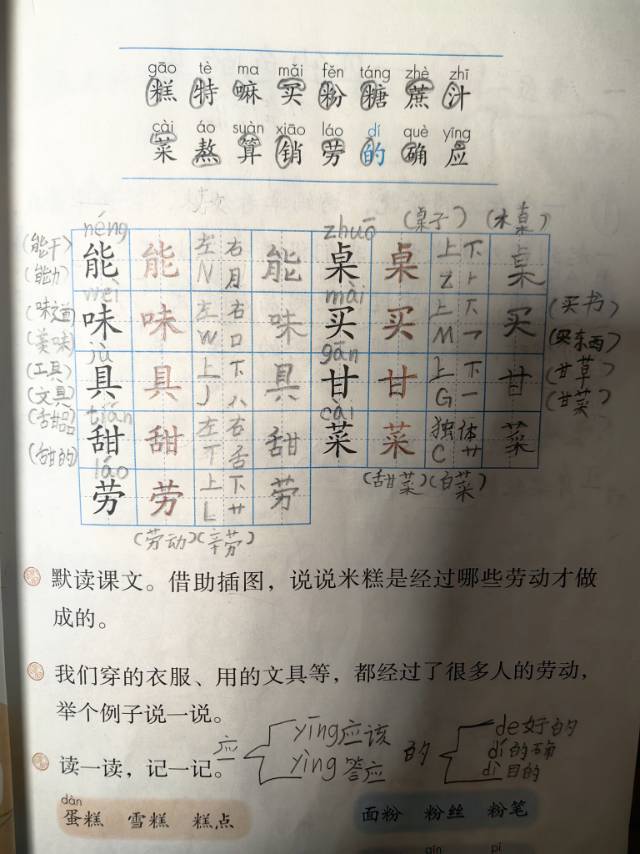 gāo tè ma mǎi fěn táng zhè zhī
糕 特 嘛 买 粉 糖 蔗 汁
cài áo suàn xiāo láo dí què yīng
菜 熬 算 销 劳 的 确 应
(桌子) (木桌)
néng zhuō
(能干) 能 能 左 右 能 桌 桌 上 下 桌
(能力) N 月 Z ⺊
wèi mǎi
(味道) 味 味 左 右 味 买 买 上 下 买 (买书)
(美味) W 口 M 乛 (买东西)
jù gān
(工具) 具 具 上 下 具 甘 甘 上 下 甘 (甘草)
(文具) J 八 G 一 (甘菜)
tián cài
(甜品) 甜 甜 左 右 甜 菜 菜 独体 菜
(甜的) T 舌 C 艹
láo (甜菜)(白菜)
劳 劳 上 下 劳
L 艹
(劳动)(辛劳)
默读课文。借助插图，说说米糕是经过哪些劳动才做
成的。
我们穿的衣服、用的文具等，都经过了很多人的劳动，
举个例子说一说。
yīng应该 de好的
应 的 dí的确
读一读，记一记。 yìng答应 dì目的
dàn
蛋糕 雪糕 糕点 面粉 粉丝 粉笔